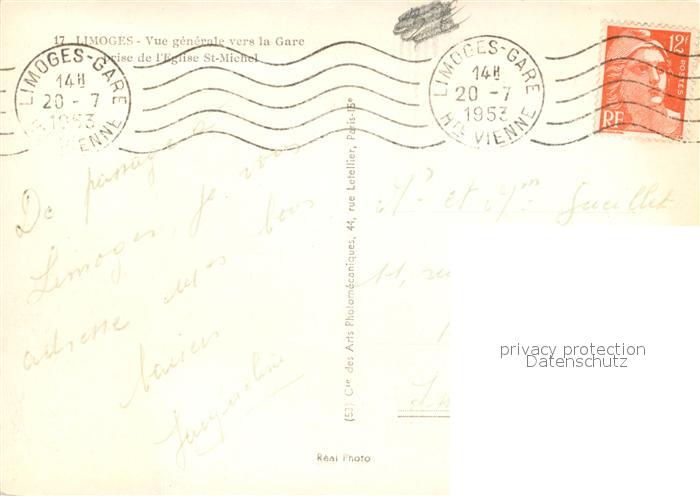 17. LIMOGES - Vue générale vers la Gare
prise de l'Eglise St-Michel
LIMOGES-GARE
14H
20 -7
1953
HTE VIENNE
LIMOGES-GARE
14H
20 -7
1953
HTE VIENNE
12F
POSTES
RF
De passage à
Limoges, je vous
adresse mes bons
baisers
Jacqueline
(53) Cie des Arts Photomécaniques, 44, rue Letellier, Paris-15e
Mr et Mme
11, rue
Réal Photo
privacy protection
Datenschutz